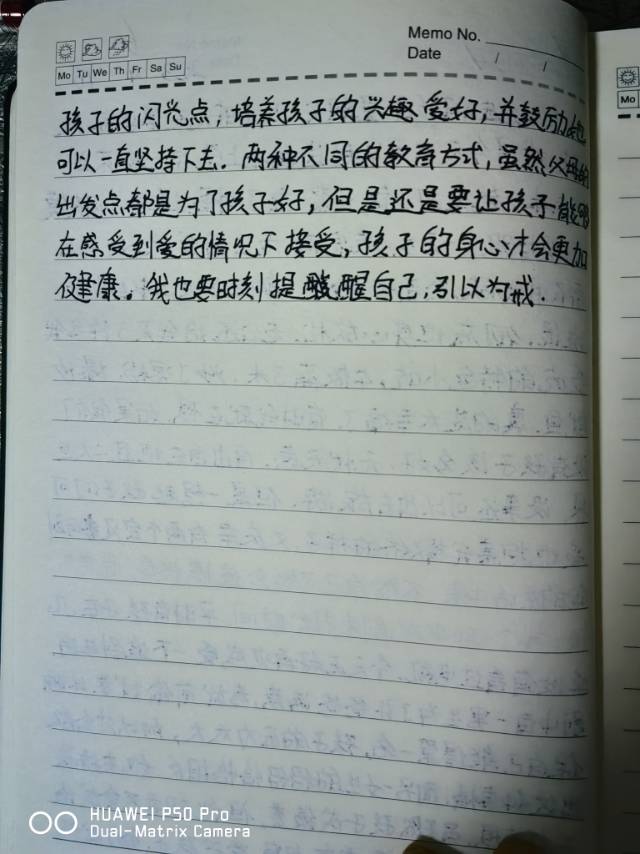 Memo No.
Date / /
Mo Tu We Th Fr Sa Su
Mo
孩子的闪光点，培养孩子的兴趣爱好，并鼓励他
可以一直坚持下去．两种不同的教育方式，虽然父母的
出发点都是为了孩子好，但是还是要让孩子能够
在感受到爱的情况下接受，孩子的身心才会更加
健康。我也要时刻提醒自己，引以为戒．
HUAWEI P50 Pro
Dual-Matrix Camera